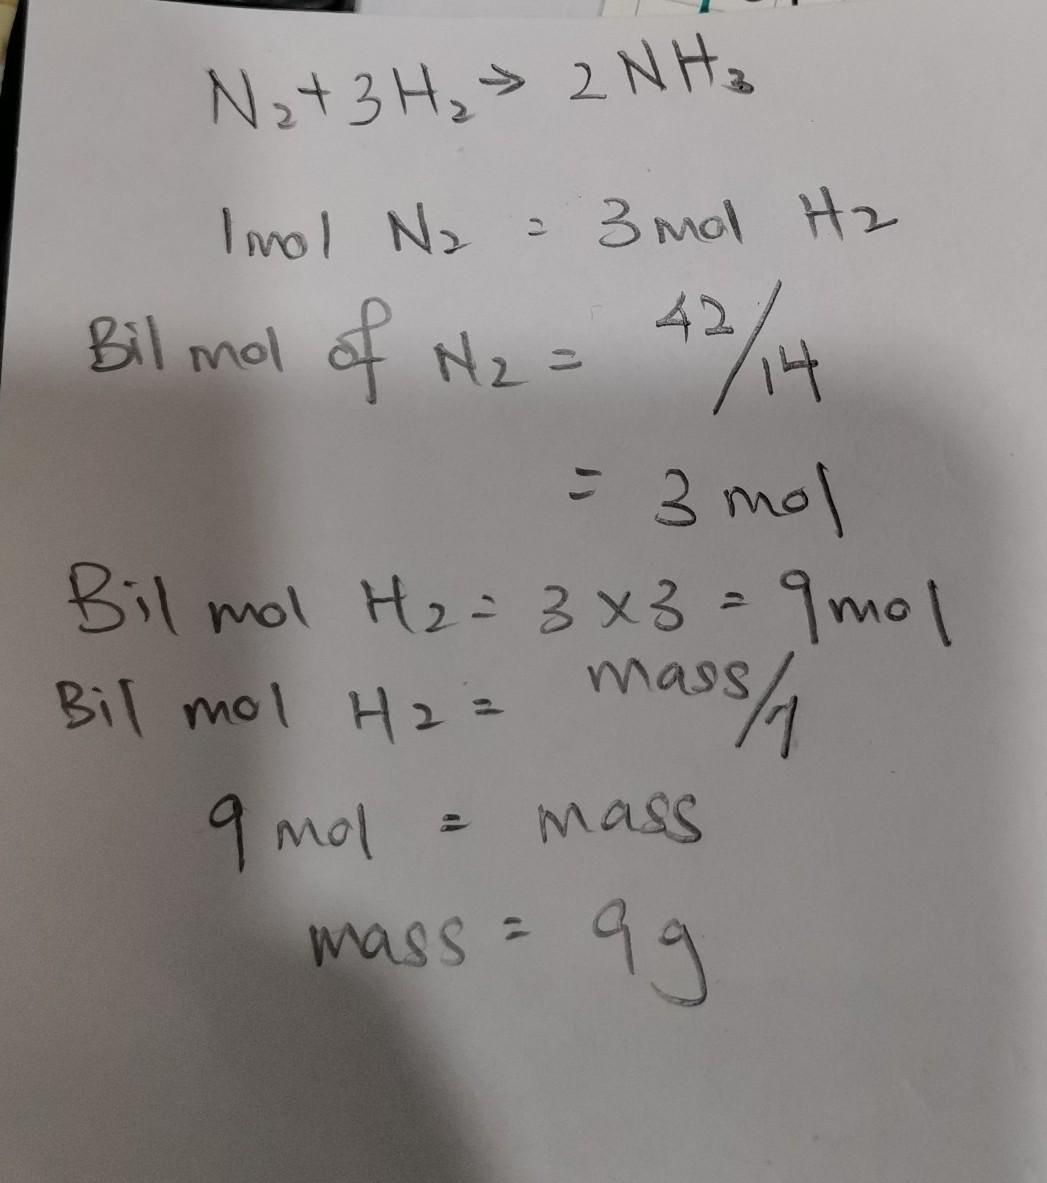 N₂+3H₂→ 2NH₃
1mol N₂ = 3mol H₂
Bil mol of N₂ = 42/14
= 3 mol
Bil mol H₂ = 3 x 3 = 9mol
Bil mol H₂ = mass/1
9 mol = mass
mass = 9g